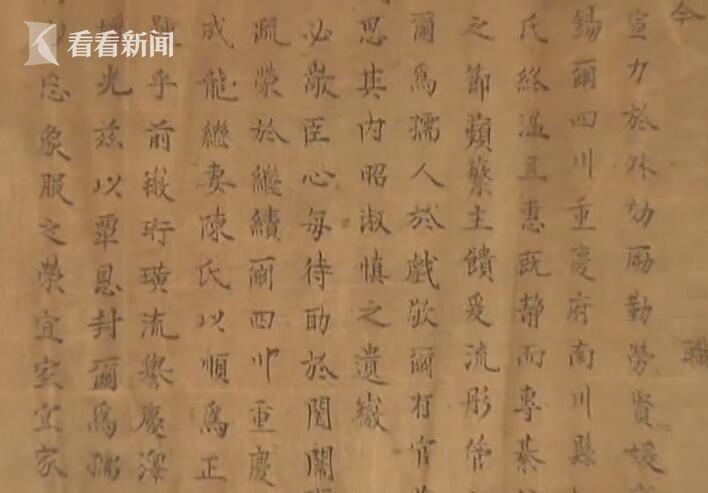 看看新闻
今 職
宣力於外劝勵勤勞賢媛
錫爾四川重慶府南川縣
氏終溫且惠既靜而專綦
之節蘋蘩主饋爰流彤管
爾爲孺人於戲敬爾有官
思其内昭淑慎之遺徽
必敬臣心每待助於閨闈
疏榮於繼續爾四川重慶
成龍繼妻陳氏以順爲正
乎前徽珩璜流譽慶澤
光兹以覃恩封爾爲孺
象服之榮宜室宜家